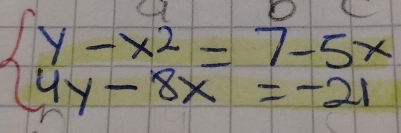 a b c
y - x2 = 7 - 5x
4y - 8x = -21